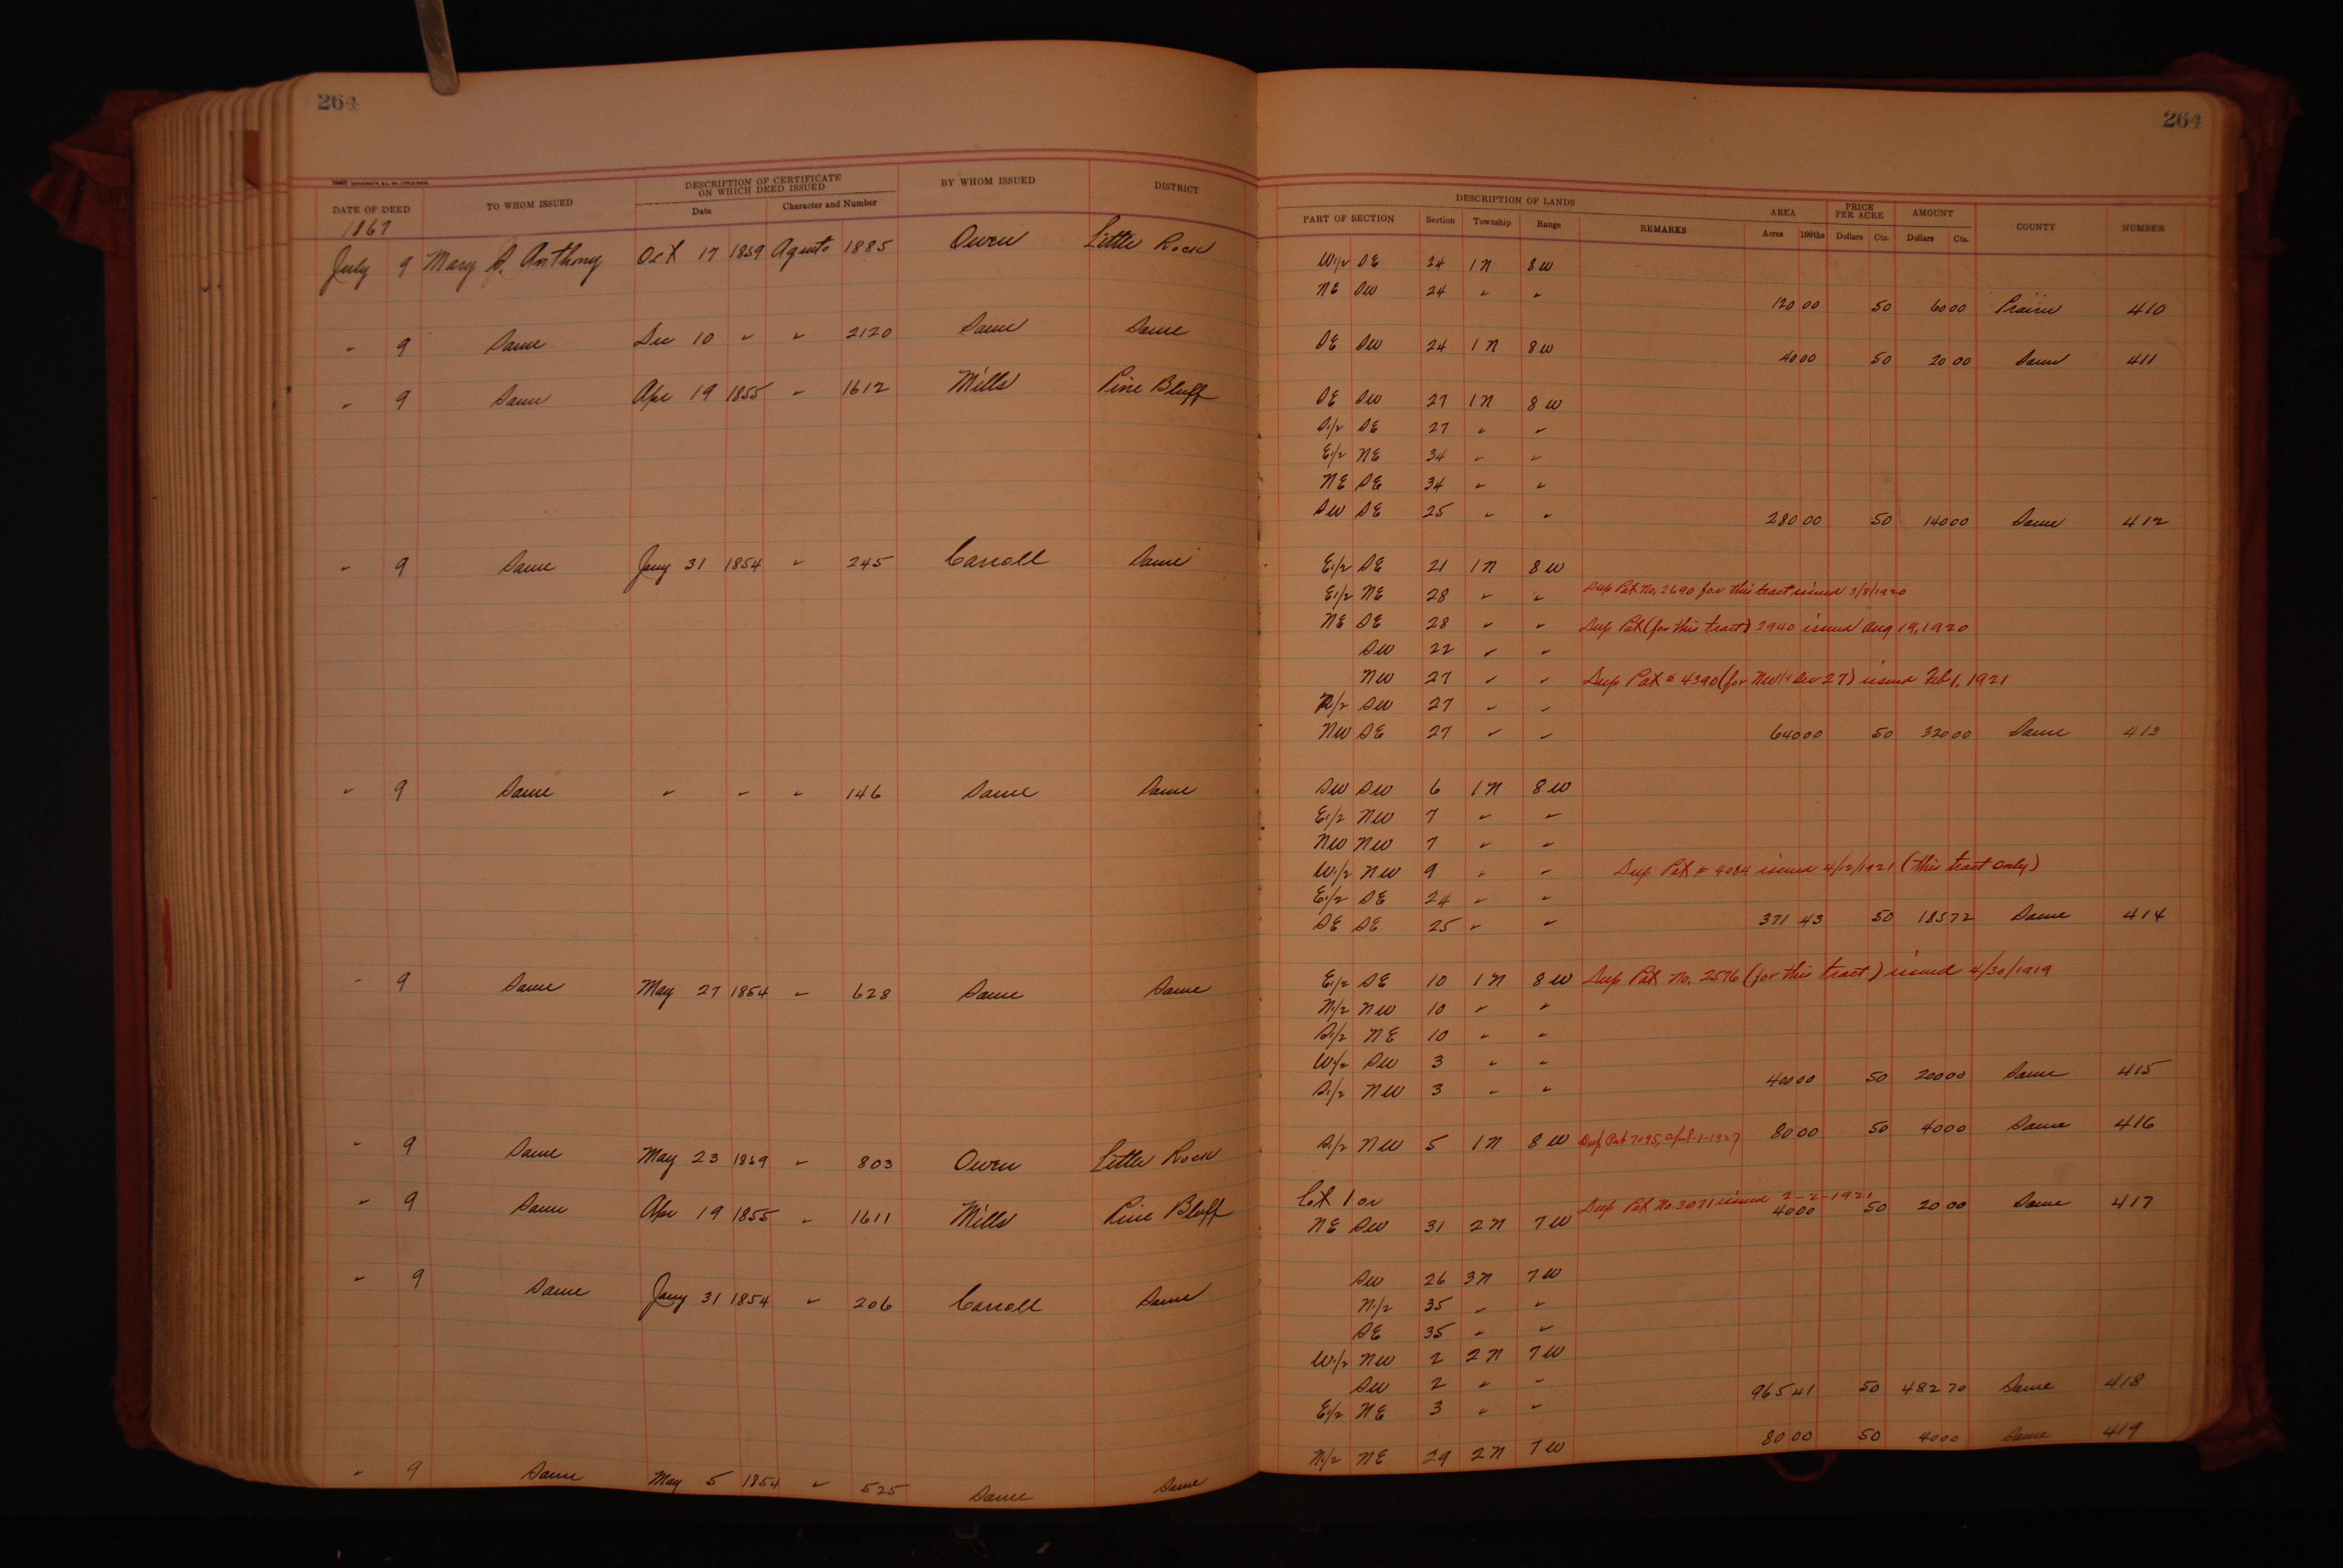 264 264
DATE OF DEED TO WHOM ISSUED DESCRIPTION OF CERTIFICATE ON WHICH DEED ISSUED Date Character and Number BY WHOM ISSUED DISTRICT DESCRIPTION OF LANDS PART OF SECTION Section Township Range REMARKS AREA Acres 100ths PRICE PER ACRE Dollars Cts. AMOUNT Dollars Cts. COUNTY NUMBER
1867
July 9 Mary A. Anthony Oct 17 1859 Agents 1885 Owen Little Rock W1/2 SE 24 1N 8W
NE SW 24 " " 120 00 50 60 00 Prairie 410
" 9 Same Dec 10 " " 2120 Same Same SE SW 24 1N 8W 40 00 50 20 00 Same 411
" 9 Same Apr 19 1855 " 1612 Mills Pine Bluff SE SW 27 1N 8W
S1/2 SE 27 " "
E1/2 NE 34 " "
NE SE 34 " "
SW SE 25 " " 280 00 50 140 00 Same 412
" 9 Same Jany 31 1854 " 245 Carroll Same E1/2 SE 21 1N 8W
E1/2 NE 28 " " Dup Pat No. 2690 for this tract issued 3/8/1920
NE SE 28 " " Dup Pat (for this tract) 2940 issued Aug 14, 1920
SW 22 " "
NW 27 " " Dup Pat # 4390 (for NW1/4 Sec 27) issued Feb 1, 1921
N1/2 SW 27 " "
NW SE 27 " " 640 00 50 320 00 Same 413
" 9 Same " " " 146 Same Same SW SW 6 1N 8W
E1/2 NW 7 " "
NW NW 7 " "
W1/2 NW 9 " " Dup Pat # 4084 issued 4/12/1921 (this tract only)
E1/2 SE 24 " "
SE SE 25 " " 371 43 50 185 72 Same 414
" 9 Same May 27 1854 " 628 Same Same E1/2 SE 10 1N 8W Dup Pat No. 2576 (for this tract) issued 4/30/1919
N1/2 NW 10 " "
S1/2 NE 10 " "
W1/2 SW 3 " "
S1/2 NW 3 " " 400 00 50 200 00 Same 415
" 9 Same May 23 1859 " 803 Owen Little Rock S1/2 NW 5 1N 8W Dup Pat 7095, April-1-1927 80 00 50 40 00 Same 416
" 9 Same Apr 19 1855 " 1611 Mills Pine Bluff Lot 1 or Dup Pat No. 3071 issued 2-2-1921
NE SW 31 2N 7W 40 00 50 20 00 Same 417
" 9 Same Jany 31 1854 " 206 Carroll Same SW 26 3N 7W
N1/2 35 " "
SE 35 " "
W1/2 NW 2 2N 7W
SW 2 " "
E1/2 NE 3 " " 965 41 50 482 70 Same 418
" 9 Same May 5 1854 " 525 Same Same N1/2 NE 29 2N 7W 80 00 50 40 00 Same 419